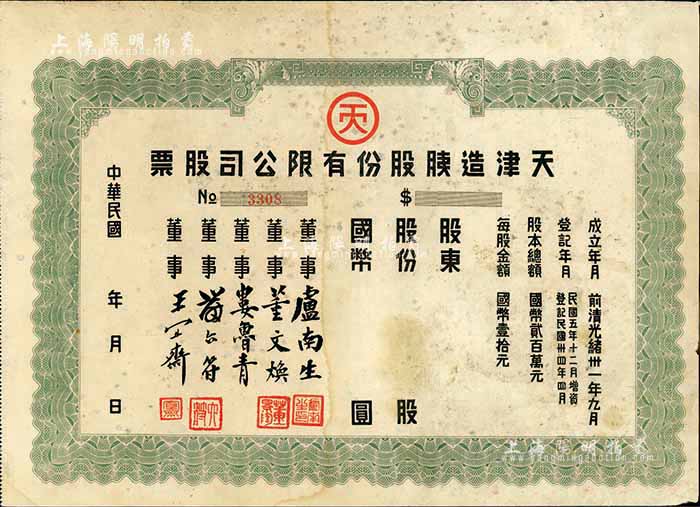 上海陽明拍賣
www.yangmingauction.com
天津造胰股份有限公司股票
$
No 3308
成立年月 前清光緒卅一年九月
登記年月 民國五年十二月增資
登記民國卅四年四月
股本總額 國幣貳百萬元
每股金額 國幣壹拾元
股東
股份 股
國幣 圓
董事 盧南生
董事 董文煥
董事 婁魯青
董事
董事 王宜齋
中華民國 年 月 日
上海陽明拍賣
上海陽明拍賣
www.yangmingauction.com